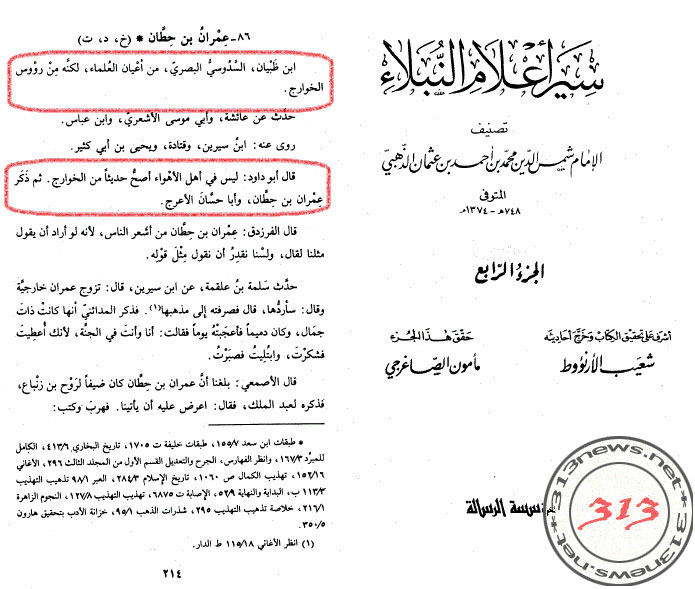 سير أعلام النبلاء
تصنيف
الإمام شمس الدين محمد بن أحمد بن عثمان الذهبي
المتوفى
٧٤٨هـ - ١٣٧٤م
الجزء الرابع
أشرف على تحقيق الكتاب وخرج أحاديثه
شعيب الأرنؤوط
حقق هذا الجزء
مأمون الصاغرجي
مؤسسة الرسالة
313
313news.net*313news.net*
٨٦ - عِمْرانُ بن حِطَّان * (خ، د، ت)
ابن ظَبْيان، السَّدُوسيُّ البصريّ، من أعْيان العُلماء، لكنَّه مِنْ رؤوس
الخوارج.
حدَّث عن عائشة، وأبي موسى الأشعريّ، وابن عباس.
روى عنه: ابنُ سيرين، وقتادة، ويحيى بن أبي كثير.
قال أبو داود: ليس في أهل الأهْواء أصحُّ حديثاً من الخوارج. ثم ذكَر
عِمْران بن حِطَّان، وأبا حسَّانَ الأعرج.
قال الفرزدق: عِمْران بن حِطَّان من أشعر الناس، لأنه لو أراد أن يقول
مثلنا لقال، ولسْنا نقدِرُ أن نقول مِثْلَ قوْلِه.
حدَّث سَلمة بنُ علقمة، عن ابن سيرين، قال: تزوج عمران خارجيَّة
وقال: سأردُّها، قال: فصرفته إلى مذهبها(١). فذكر المدائنيّ أنها كانتْ ذاتَ
جمَال، وكان دميماً فأعجَبَتْهُ يوماً فقالت: أنا وأنت في الجنَّة، لأنك أُعطِيتَ
فشكَرْتَ، وابتُلِيتُ فصبَرْتُ.
قال الأصمعي: بلغنا أنَّ عمران بن حِطَّان كان ضيفاً لرَوْح بن زِنْباع،
فذكره لعبد الملك، فقال: اعرض عليه أن يأتينا. فهربَ وكتب:
* طبقات ابن سعد ١٥٥/٧، طبقات خليفة ت ١٧٠٥، تاريخ البخاري ٤١٣/٦، الكامل
للمبرّد ١٦٧/٣، وانظر الفهارس، الجرح والتعديل القسم الأول من المجلد الثالث ٢٩٦، الأغاني
١٥٢/١٦، تهذيب الكمال ص ١٠٦٠، تاريخ الإسلام ٢٨٤/٣، العبر ٩٨/١، تذهيب التهذيب
١١٣/٣ ب، البداية والنهاية ٥٢/٩، الإصابة ت ٦٨٧٥، تهذيب التهذيب ١٢٧/٨، النجوم الزاهرة
٢١٦/١، خلاصة تذهيب التهذيب ٢٩٥، شذرات الذهب ٩٥/١، خزانة الأدب بتحقيق هارون
٣٥٠/٥.
(١) انظر الأغاني ١١٥/١٨ ط الدار.
٢١٤